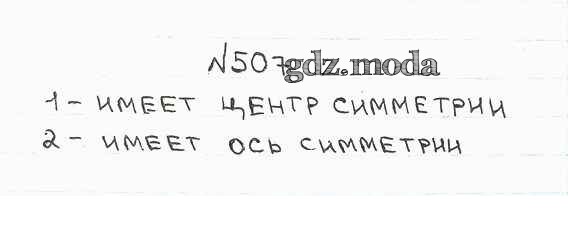 №507
gdz.moda
1 - ИМЕЕТ ЦЕНТР СИММЕТРИИ
2 - ИМЕЕТ ОСЬ СИММЕТРИИ